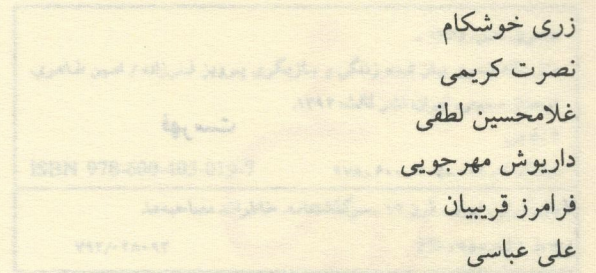 زری خوشکام
نصرت کریمی
غلامحسین لطفی
داریوش مهرجویی
فرامرز قریبیان
علی عباسی